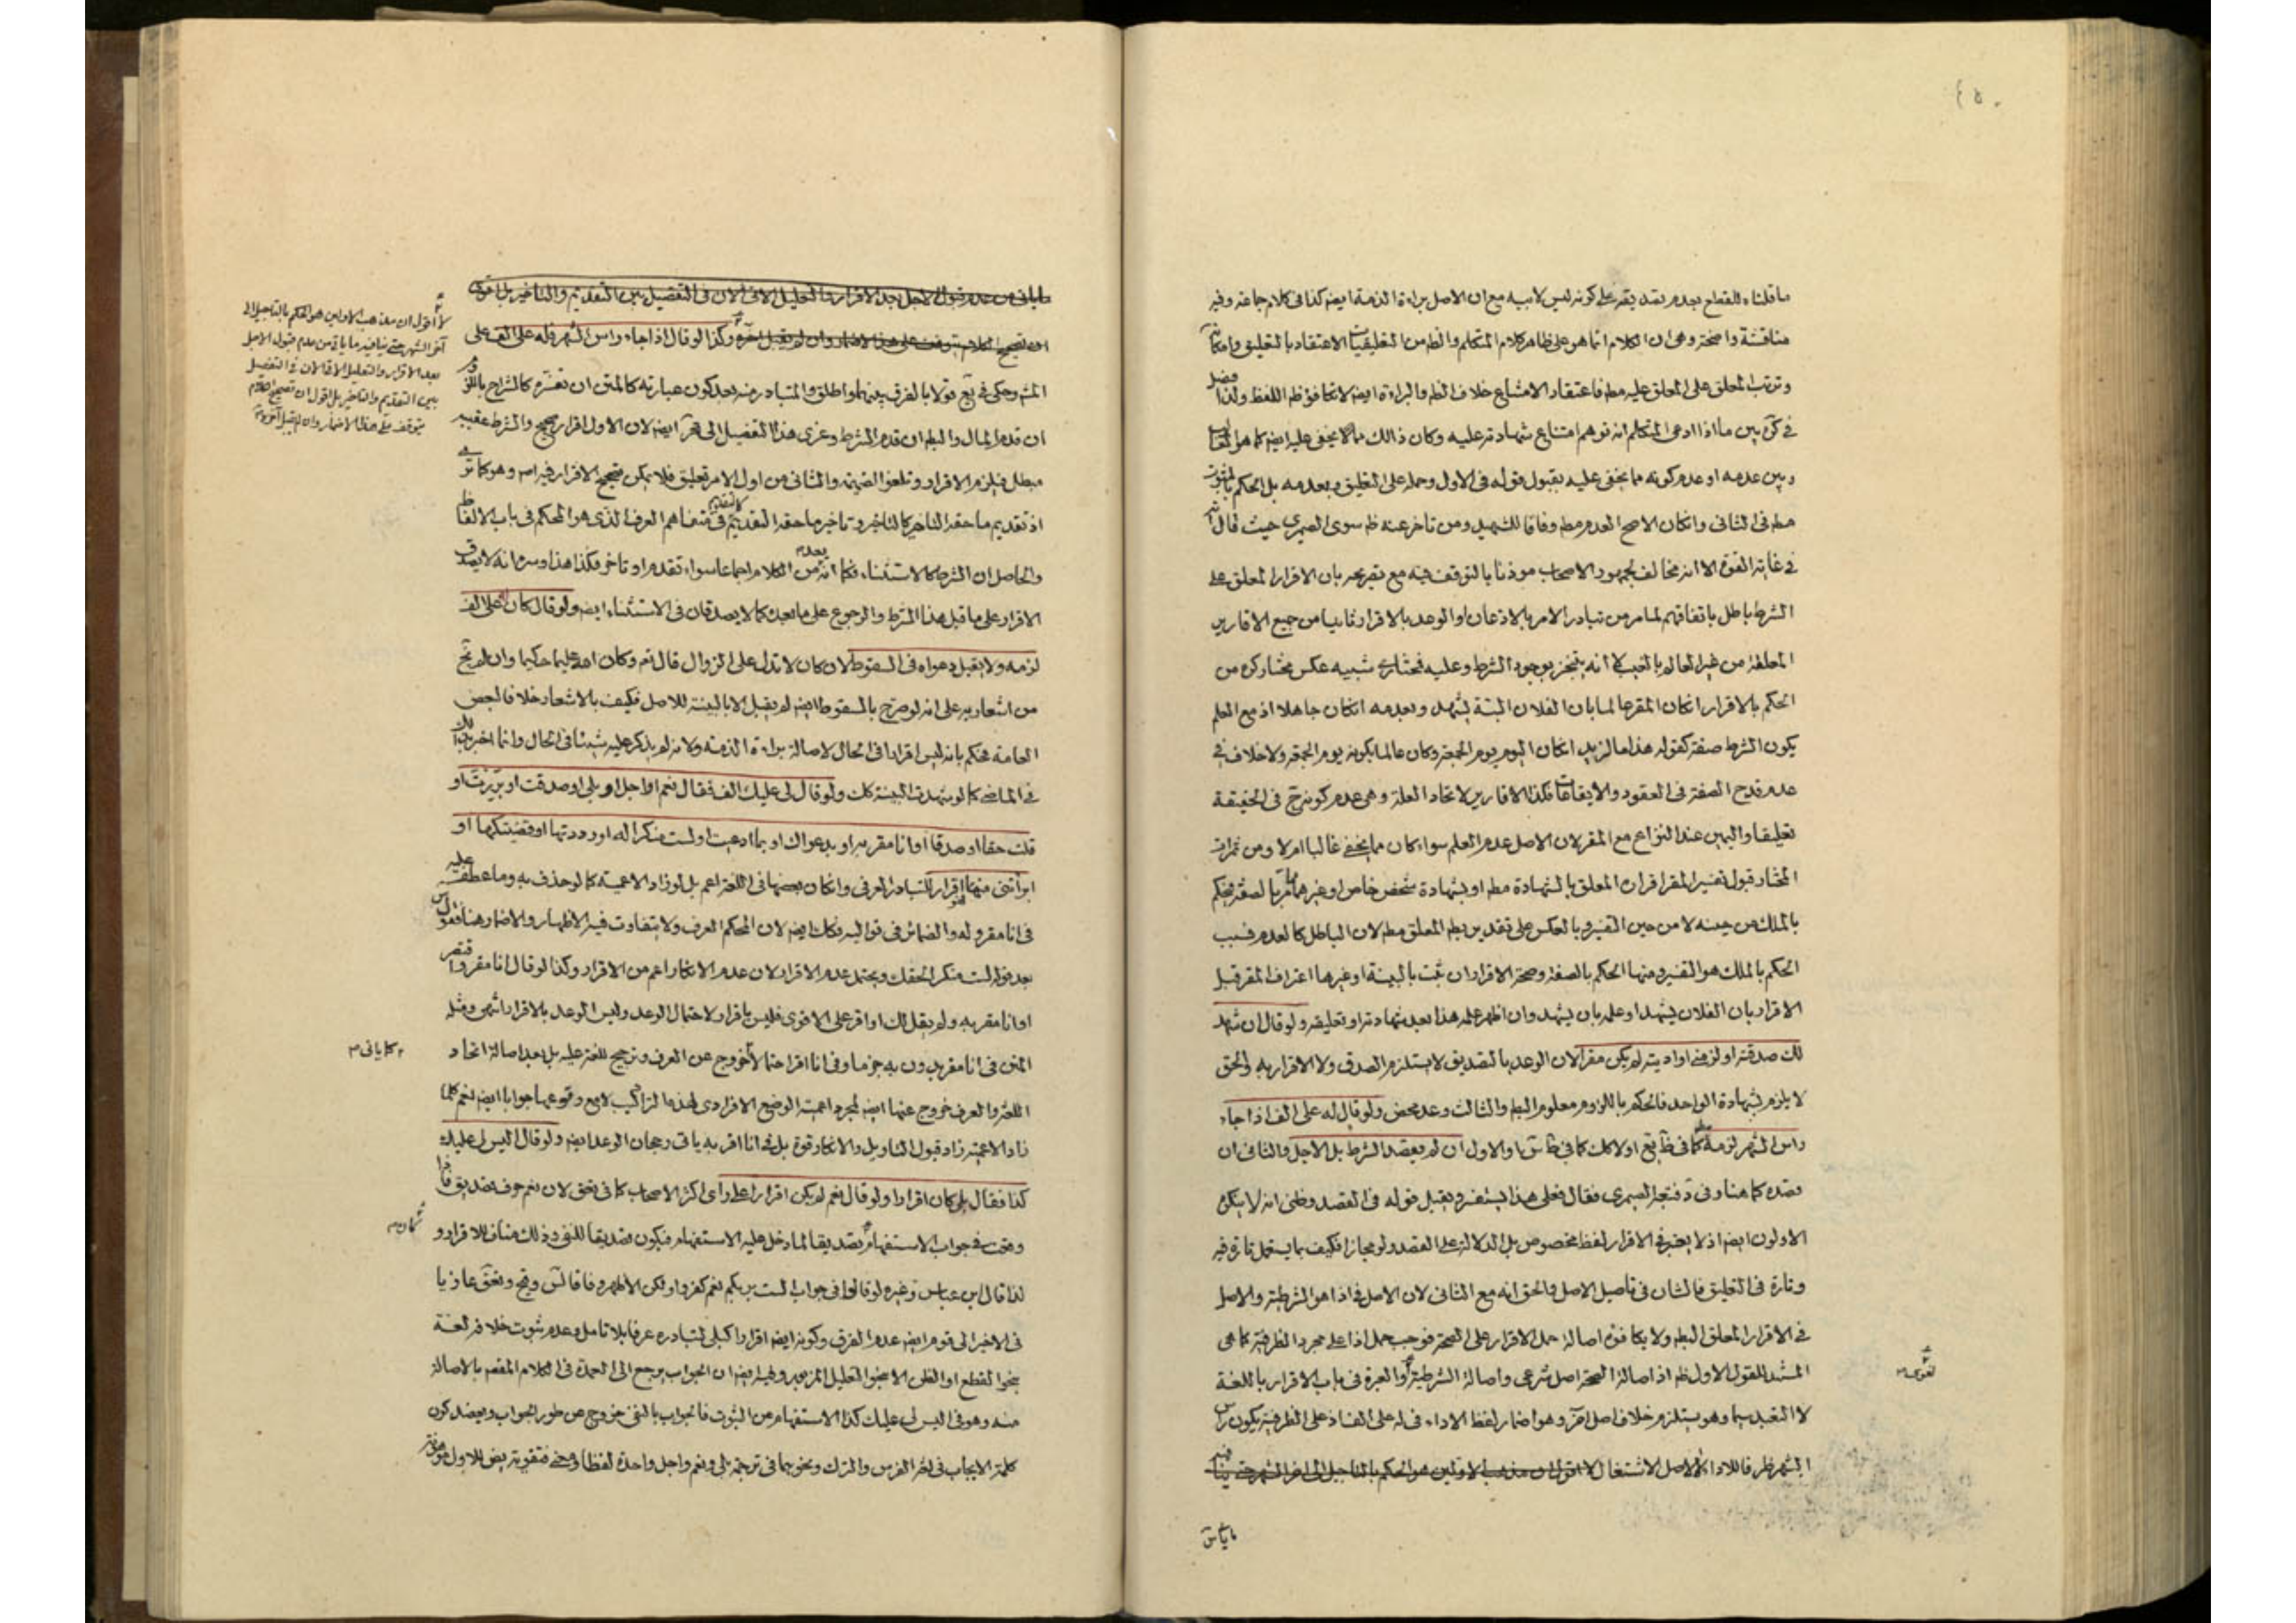 ٤٥٠
ما قلناه للقطع بعدم تصديقه على كونه ليس لابيه مع ان الاصل براءة الذمة ايضا كذا في كلام جماعة وفيه
مناقشة واضحة وهي ان الكلام انما هو على ظاهر كلام المتكلم والظ من التعليقيات الاعتقاد بالتعليق وامكان
وترتب المعلق على المعلق عليه مط فاعتقاد الامتناع خلاف الظ والبراءة ايضا لا تكافؤ ظ اللفظ ولذا فصل
في كره بين ما اذا ادعى المتكلم انه توهم امتناع شهادته عليه وكان ذالك مما لا يخفى عليه ايضا كما هو الغالب
وبين عدمه او عدم كونه مما يخفى عليه بقبول قوله في الاول وحمله على التعليق وبعدمه بل الحكم بالثبوت
مط في الثاني وانكان الاصح العدم مط وفاقا للشهيد ومن تاخر عنه ظ سوى الصيمري حيث قال انه
في غاية القوة الا انه مخالف لجمهور الاصحاب موذنا بالتوقف فيه مع تصريحه بان الاقرار المعلق على
الشرط باطل باتفاقهم لما مر من تبادر الامر بالاذعان او الوعد بالاقرار ثانيا من جميع الاقارير
المعلقة من غير العالم بالغيب لا انه يتنجز بوجود الشرط وعليه فمختار شبيه عكس مختار كره من
الحكم بالاقرار انكان المقر عالما بان الفلان البتة يشهد وبعدمه انكان جاهلا اذ مع العلم
يكون الشرط صفة كقوله هذا مال زيد انكان اليوم يوم الجمعة وكان عالما بكونه يوم الجمعة ولا خلاف في
عدم قدح الصفة في العقود والايقاعات فكذا الاقارير لاتحاد العلة وهي عدم كونه ح في الحقيقة
تعليقا واليمين عند النزاع مع المقر لان الاصل عدم العلم سواء كان مما يخفى غالبا ام لا ومن ثمرات
المختار قبول تفسير المقر اقراره المعلق بالشهادة مط او بشهادة شخص خاص او غيرهما مما مر بالصفة فيحكم
بالملك من حينه لا من حين التفسير وبالعكس على تقدير بط المعلق مط لان الباطل كالعدم فسبب
الحكم بالملك هو التفسير ومنها الحكم بالصفة وصحة الاقرار ان ثبت بالبينة او غيرها اعتراف المقر قبل
الاقرار بان الفلان يشهد او علمه بان يشهد وان اظهر علمه هذا بعد شهادته او تعليقه ولو قال ان شهد
لك صدقته او لزمني او اديته لم يكن مقرا لان الوعد بالتصديق لا يستلزم الصدق ولا الاقرار به والحق
لا يلزم بشهادة الواحد فالحكم باللزوم معلوم البط والثالث وعد محض ولو قال له على الف اذا جاء
راس الشهر لزمه كما في ئع اولا كك كما في والاول ان لم يقصد الشرط بل الاجل والثاني ان
قصده كما هنا وفي د فنتجه الصيمري فقال فعلى هذا يستفسر ويقبل قوله في القصد وظني انه لا ينكره
الاولون ايضا اذ لا يعتبر في الاقرار لفظ مخصوص بل الدلالة على القصد ولو مجازا فكيف بما يستعمل تارة فيه
وتارة في التعليق فالشان في تاصيل الاصل والحق انه مع الثاني لان الاصل في اذا هو الشرطية والاصل
في الاقرار المعلق البط ولا يكافؤه اصالة حمل الاقرار على الصحة فوجب حمل اذا على مجرد الظرفية كما هي
المستند للقول الاول ظ اذ اصالة الصحة اصل شرعي واصالة الشرطية لغوي والعبرة في باب الاقرار باللغة
لا التعبد بها وهو يستلزم خلاف اصل اخر وهو اضمار لفظ الاداء في له على الف اذ على الظرفية يكون راس
الشهر ظرفا للاداء لا لاصل الاشتغال لا اقول ان مذهب الاولين هو الحكم بالتاجيل الى اخر الشهر حتى ينافيه
ما ياتي
لغوي صح
ما ياتي من عدم قبول الاجل بعد الاقرار والتعليل الاتي الان في التفصيل بين التقديم والتاخير بل اقول
ان تصحيح الكلام يتوقف على هذا الاضمار وان لم يقبل اخره وكذا لو قال اذا جاء راس الشهر فله على الف على
المشهور وحكى في ئع قولا بالفرق بينهما واطلق والمتبادر منه بعد كون عبارته كالمتن ان تفسره كالشارح باللزوم
ان قدم المال والبط ان قدم الشرط وعزى هذا التفصيل الى اخر ايضا لان الاول اقرار صحيح والشرط عقيبه
مبطل فيلزم الاقرار وتلغو الضميمة والثاني من اول الامر تعليق فلا يمكن تصحيح الاقرار فيه اصلا وهو كما ترى
اذ تقديم ما حقه التاخير كالتاخير وتاخير ما حقه التقديم كالتقديم في متفاهم العرف الذي هو المحكم في باب الالفاظ
والحاصل ان الشرط كالاستثناء فكما انه يعد من الكلام اجماعا سواء تقدم او تاخر فكذا هذا وسره انه لا يصدق
الاقرار على ما قبل هذا الشرط والرجوع على ما بعده كما لا يصدقان في الاستثناء ايضا ولو قال كان له على الف
لزمه ولا يقبل دعواه في السقوط لان كان لا تدل على الزوال قال تع وكان الله عليما حكيما وان لم تخ
من اشعار به على انه لو صرح بالسقوط ايضا لم يقبل الا بالبينة للاصل فكيف بالاشعار خلافا لبعض
العامة فحكم بانه ليس اقرارا في الحال لاصالة براءة الذمة ولانه لم يذكر عليه شيئا في الحال وانما اخبر بذلك
في الماضي كما لو شهدت البينة كك ولو قال لي عليك الف فقال نعم او اجل او بلى او صدقت او بررت او
قلت حقا او صدقا او انا مقر به او بدعواك او بما ادعيت او لست منكرا له او رددتها او قضيتكها او
ابرأتني منها فهو اقرار للتبادر العرفي وانكان بعضها في اللغة اعم بل لو زاد الاعمية كما لو حذف به وما عطف عليه
في انا مقر وله والضمائر في قواليه فكك ايضا لان المحكم العرف ولا يتفاوت فيه الاظهار والاضمار هنا فقول س
بعد قوله لست منكرا لحقك ويحتمل عدم الاقرار لان عدم الانكار اعم من الاقرار وكذا لو قال انا مقر واقتصر
او انا مقر به ولم يقل لك او اقر على الاقوى فليس باقرار لاحتمال الوعد وليس الوعد بالاقرار انتهى ومثله
المتن في انا مقر بدون به جزما وفي انا اقر احتمالا خروج عن العرف وترجيح للغة عليه بل بعد اصالة اتحاد
اللغة والعرف خروج عنها ايضا لمجرد اعمية الوضع الافرادي لهذه التراكيب لا مع وقوعها جوابا ايضا نعم كلما
زاد الاعمية زاد قبول التاويل والانكار قوة بل في انا اقر به ياتي رجحان الوعد ايضا ولو قال اليس لي عليك
كذا فقال بلى كان اقرارا ولو قال نعم لم يكن اقرارا على راى اكثر الاصحاب كما في لان نعم حرف تصديق فاذا
وقعت في جواب الاستفهام كان تصديقا لما دخل عليه الاستفهام فيكون تصديقا للنفي وذلك مناف للاقرار و
لذا قال ابن عباس وغيره لو قالوا في جواب الست بربكم نعم كفروا ولكن الاظهر وفاقا لس وفخ ونفق عازيا
في الاخير الى قوم ايضا عدم الفرق وكونه ايضا اقرارا كبلى لتبادره عرفا بلا تامل وعدم ثبوت خلافه لغة
بنحو القطع او الظن الا بنحو التعليل المزبور وفيه ايضا ان الجواب يرجع الى العمدة في الكلام المقصد بالاصالة
منه وهو في اليس لي عليك كذا الاستفهام من الثبوت فالجواب بالنفي خروج عن طور الجواب ويعضد كون
كلمة الايجاب في لغة الفرس والترك ونحوهما في ترجمة بلى ونعم واجل واحدة لفظا ومعنى فتقوية بعض للاول موهونة
لا اقول ان مذهب الاولين هو الحكم بالتاجيل الى
اخر الشهر حتى ينافيه ما ياتي من عدم قبول الاجل
بعد الاقرار والتعليل الاتي الان في التفصيل
بين التقديم والتاخير بل اقول ان تصحيح الكلام
يتوقف على هذا الاضمار وان لم يقبل اخره صح
كما ياتي صح
كان صح